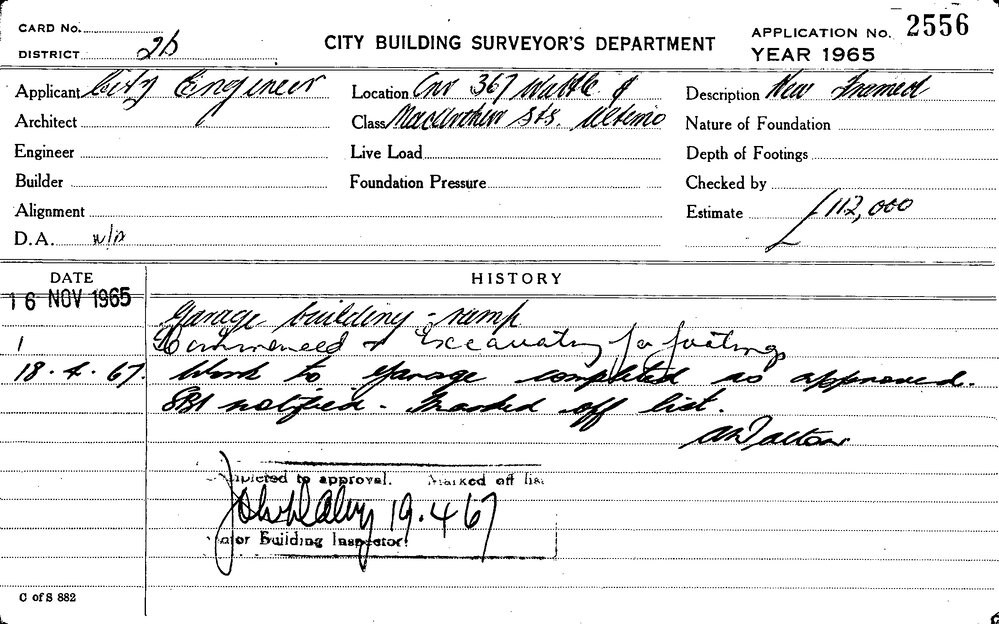 CARD No.
DISTRICT 2b
CITY BUILDING SURVEYOR'S DEPARTMENT
APPLICATION No. 2556
YEAR 1965
Applicant City Engineer
Location Cnr 367 Wattle &
Description New Framed
Architect
Class Macarthur Sts. Ultimo
Nature of Foundation
Engineer
Live Load
Depth of Footings
Builder
Foundation Pressure
Checked by
Alignment
Estimate £112,000
D.A. n/a
DATE
HISTORY
16 NOV 1965
Garage building - ramp
1 Commenced & Excavating for footings
18.4.67. Work to garage completed as approved.
SBI notified. Marked off list.
Completed to approval. Marked off list
19.4.67
Senior Building Inspector.
C of S 882